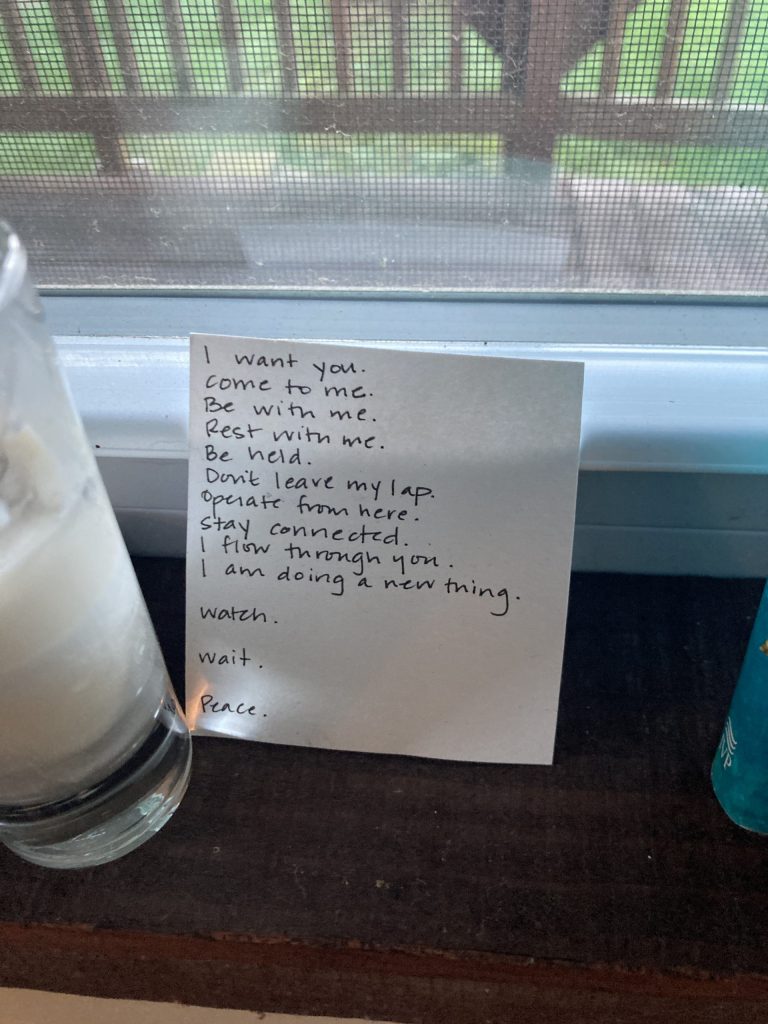 I want you.
Come to me.
Be with me.
Rest with me.
Be held.
Don't leave my lap.
Operate from here.
Stay connected.
I flow through you.
I am doing a new thing.
Watch.
Wait.
Peace.